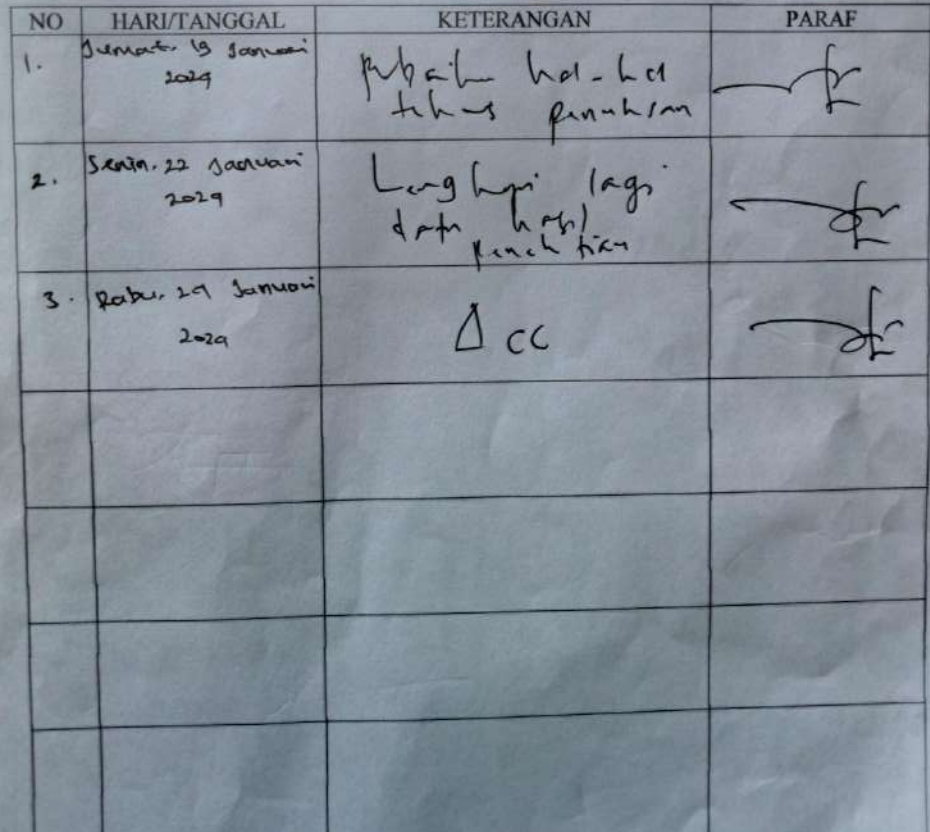 NO HARI/TANGGAL KETERANGAN PARAF
1. Jumat, 19 Januari
2024
hal-hal
teknis penulisan
2. Senin, 22 Januari
2024
Lengkapi lagi
data hasil
penelitian
3. Rabu, 24 Januari
2024
Acc